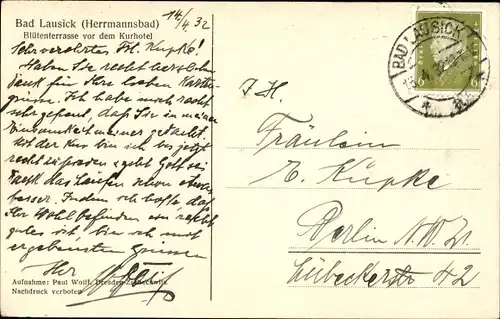 Bad Lausick (Herrmannsbad)
Blütenterrasse vor dem Kurhotel
14/4. 32
Sehr verehrtes Frl. Kupke!
Haben Sie recht herzlichen
Dank für Ihre lieben Karten-
grüsse. Ich habe mich recht
sehr gefreut, daß Sie in meiner
Einsamkeit meiner gedacht.
Mit der Kur bin ich bis jetzt
recht zufrieden u. geht Gott sei
Dank das Laufen schon etwas
besser. Indem ich hoffe, daß
Ihr Wohlbefinden ein recht
gutes ist, bin ich mit
ergebensten Grüssen
Ihr
Aufnahme: Paul Wolff, Dresden-Zschachwitz
Nachdruck verboten
BAD LAUSICK
6
Fräulein
E. Kupke
Berlin N.W. 21
Lübeckerstr 42